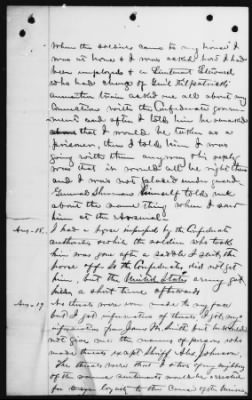 When the soldiers came to my house I
was at home & I was asked how I had
been employed & a Lieutenant
who had charge of Genl Kilpatricks
ammunition train asked me all about my
connection with the Confederate govern-
ment and after I told him he remarked
that I would be taken as a
prisoner, then I told him I was
going with them anyway & his reply
was that it would all be right then
and I was not placed under guard
General Sherman himself told me
about the same thing when I saw
him at the Arsenal.
Ans-18. I had a horse impressed by the Confederate
authorities while the soldier who took
him was gone after a saddle I sent the
horse off. So the Confederates did not get
him, but the United States army got
him a short time afterwards
Ans-19 No threats were ever made to my face
but I got information of threats I got my
information from James M. Smith but he would
not give me the names of persons who
made threats except Sheriff Alex Johnson.
The threats were that I & other of my neighbors
of the same sentiments would be arrested
for our loyalty to the Cause of the Union